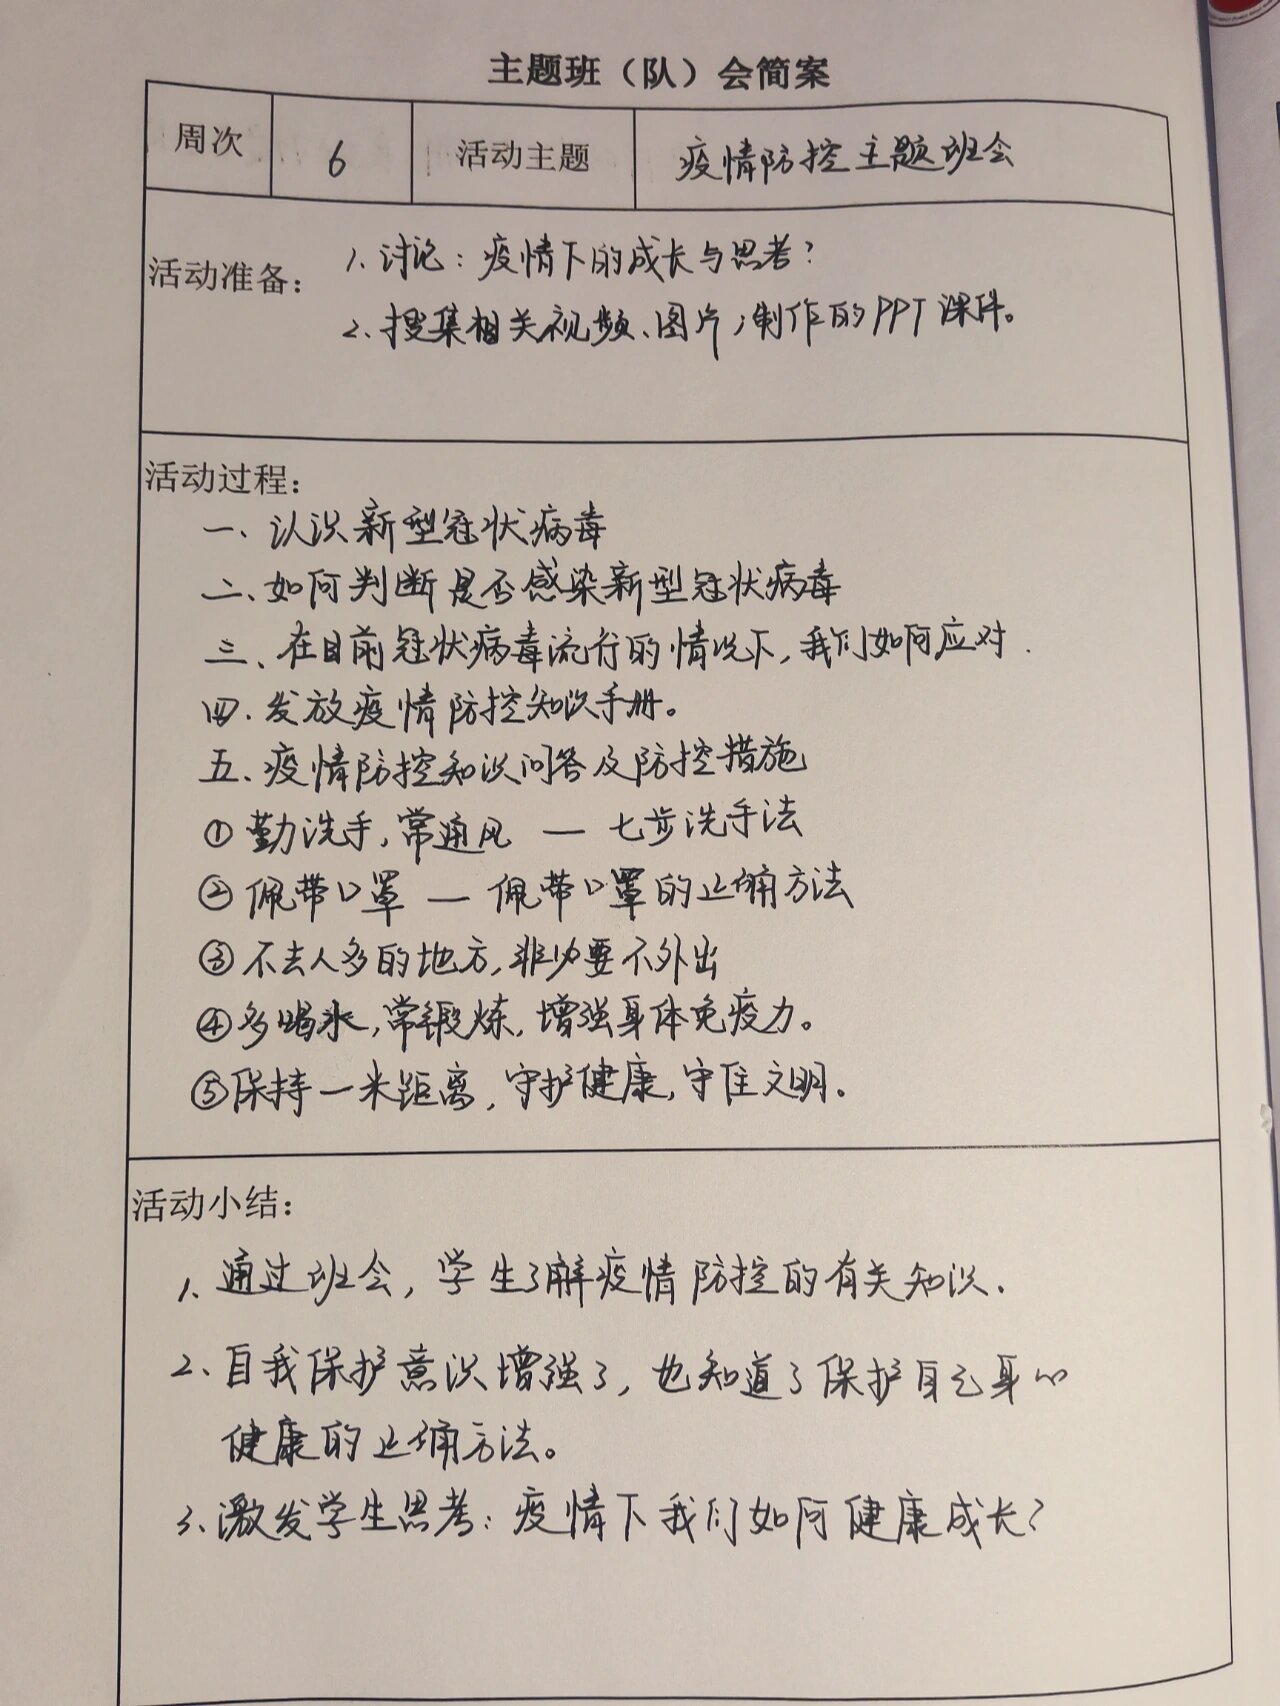 主题班（队）会简案
周次 6 活动主题 疫情防控主题班会
活动准备： 1. 讨论：疫情下的成长与思考？
2. 搜集相关视频、图片，制作的PPT课件。
活动过程：
一、认识新型冠状病毒
二、如何判断是否感染新型冠状病毒
三、在目前冠状病毒流行的情况下，我们如何应对.
四. 发放疫情防控知识手册。
五、疫情防控知识问答及防控措施
①勤洗手，常通风 — 七步洗手法
②佩带口罩 — 佩带口罩的正确方法
③不去人多的地方，非必要不外出
④多喝水，常锻炼，增强身体免疫力。
⑤保持一米距离，守护健康，守住文明.
活动小结：
1、通过班会，学生了解疫情防控的有关知识.
2、自我保护意识增强了，也知道了保护自己身心
健康的正确方法。
3、激发学生思考：疫情下我们如何健康成长？